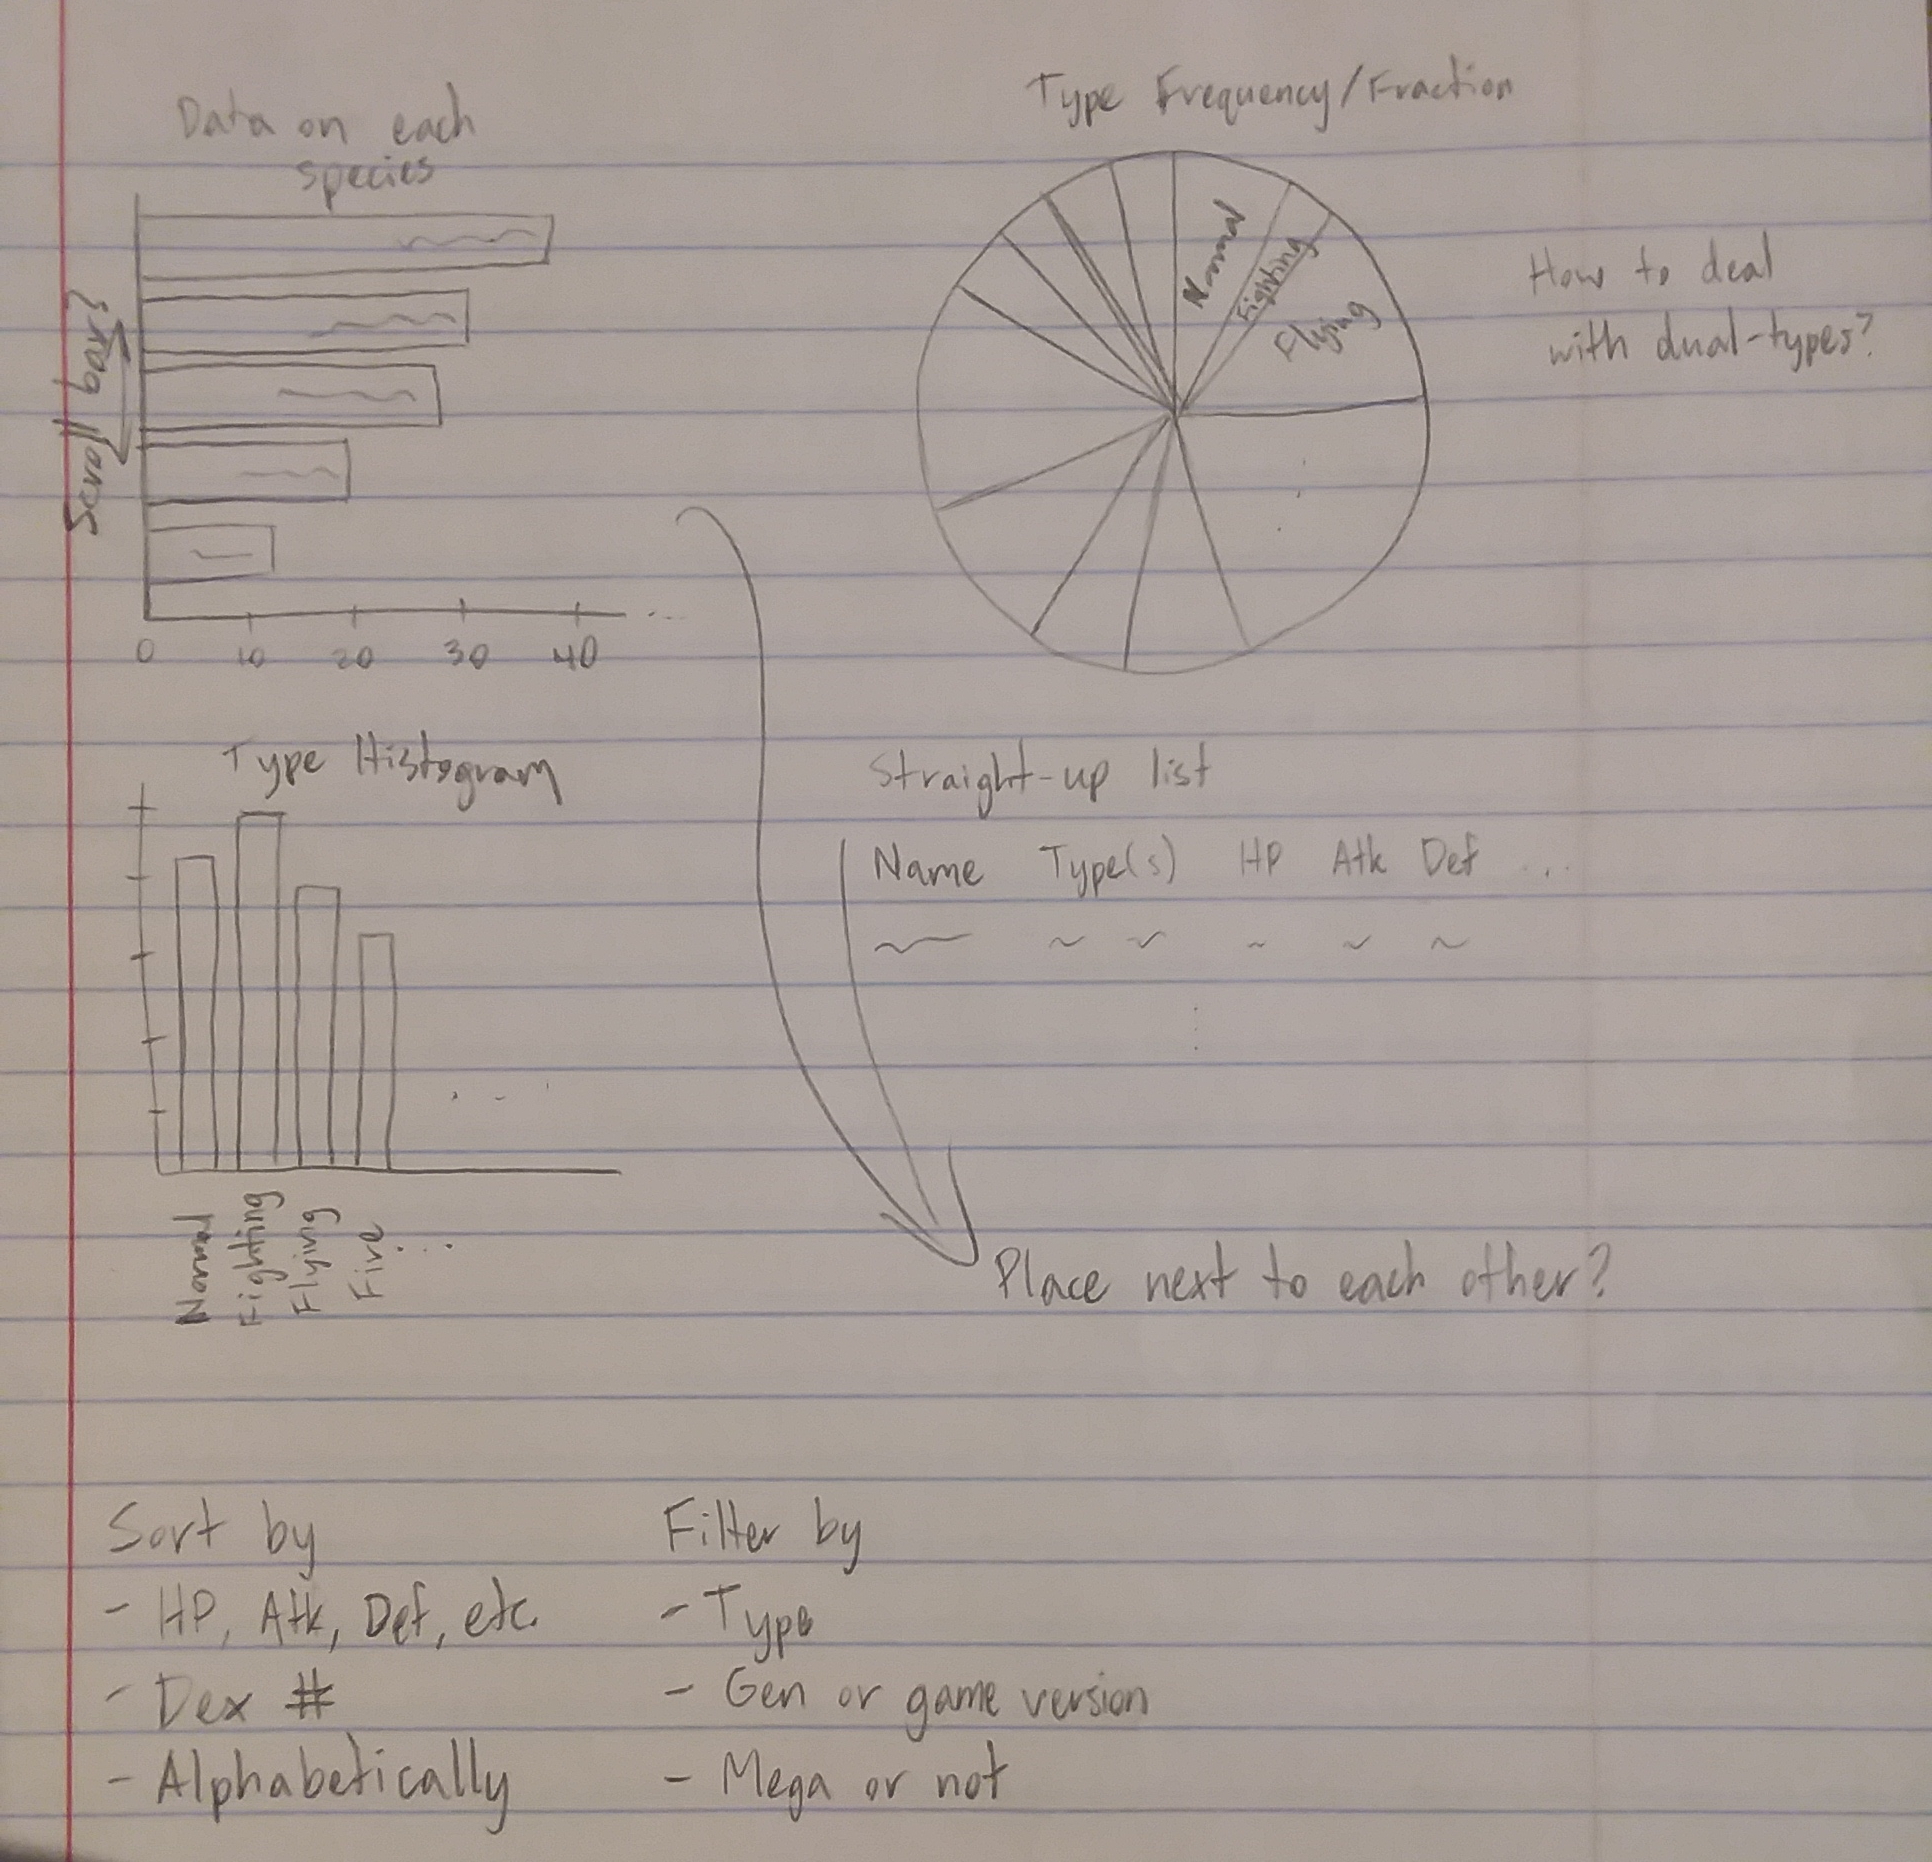 Data on each
species
Scroll bar?
0 10 20 30 40 ...
Type Frequency/Fraction
Normal
Fighting
Flying
How to deal
with dual-types?
Type Histogram
Normal
Fighting
Flying
Fire
...
Straight-up list
Name Type(s) HP Atk Def ...
Place next to each other?
Sort by
- HP, Atk, Def, etc.
- Dex #
- Alphabetically
Filter by
- Type
- Gen or game version
- Mega or not